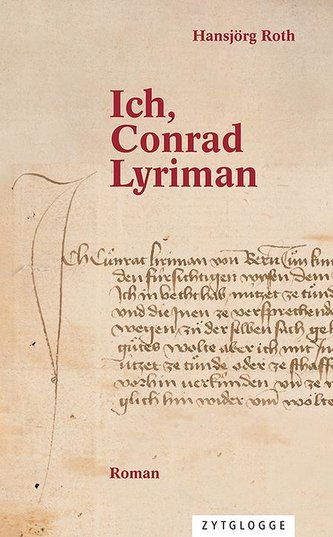 Hansjörg Roth
Ich,
Conrad
Lyriman
Ich Cůnrat liriman von Bern Tůn kun
den fürsichtigen wisen dem
Ich in bechab nützet ze tůnd
und die Inen ze versprechende
wegen, zů der selben sach gel
gůtes wolte aber ich mit In
ützet ze tůnde oder ze schaffe
vorhin verkünden un ze w
glich hin wider um wölte
Roman
ZYTGLOGGE